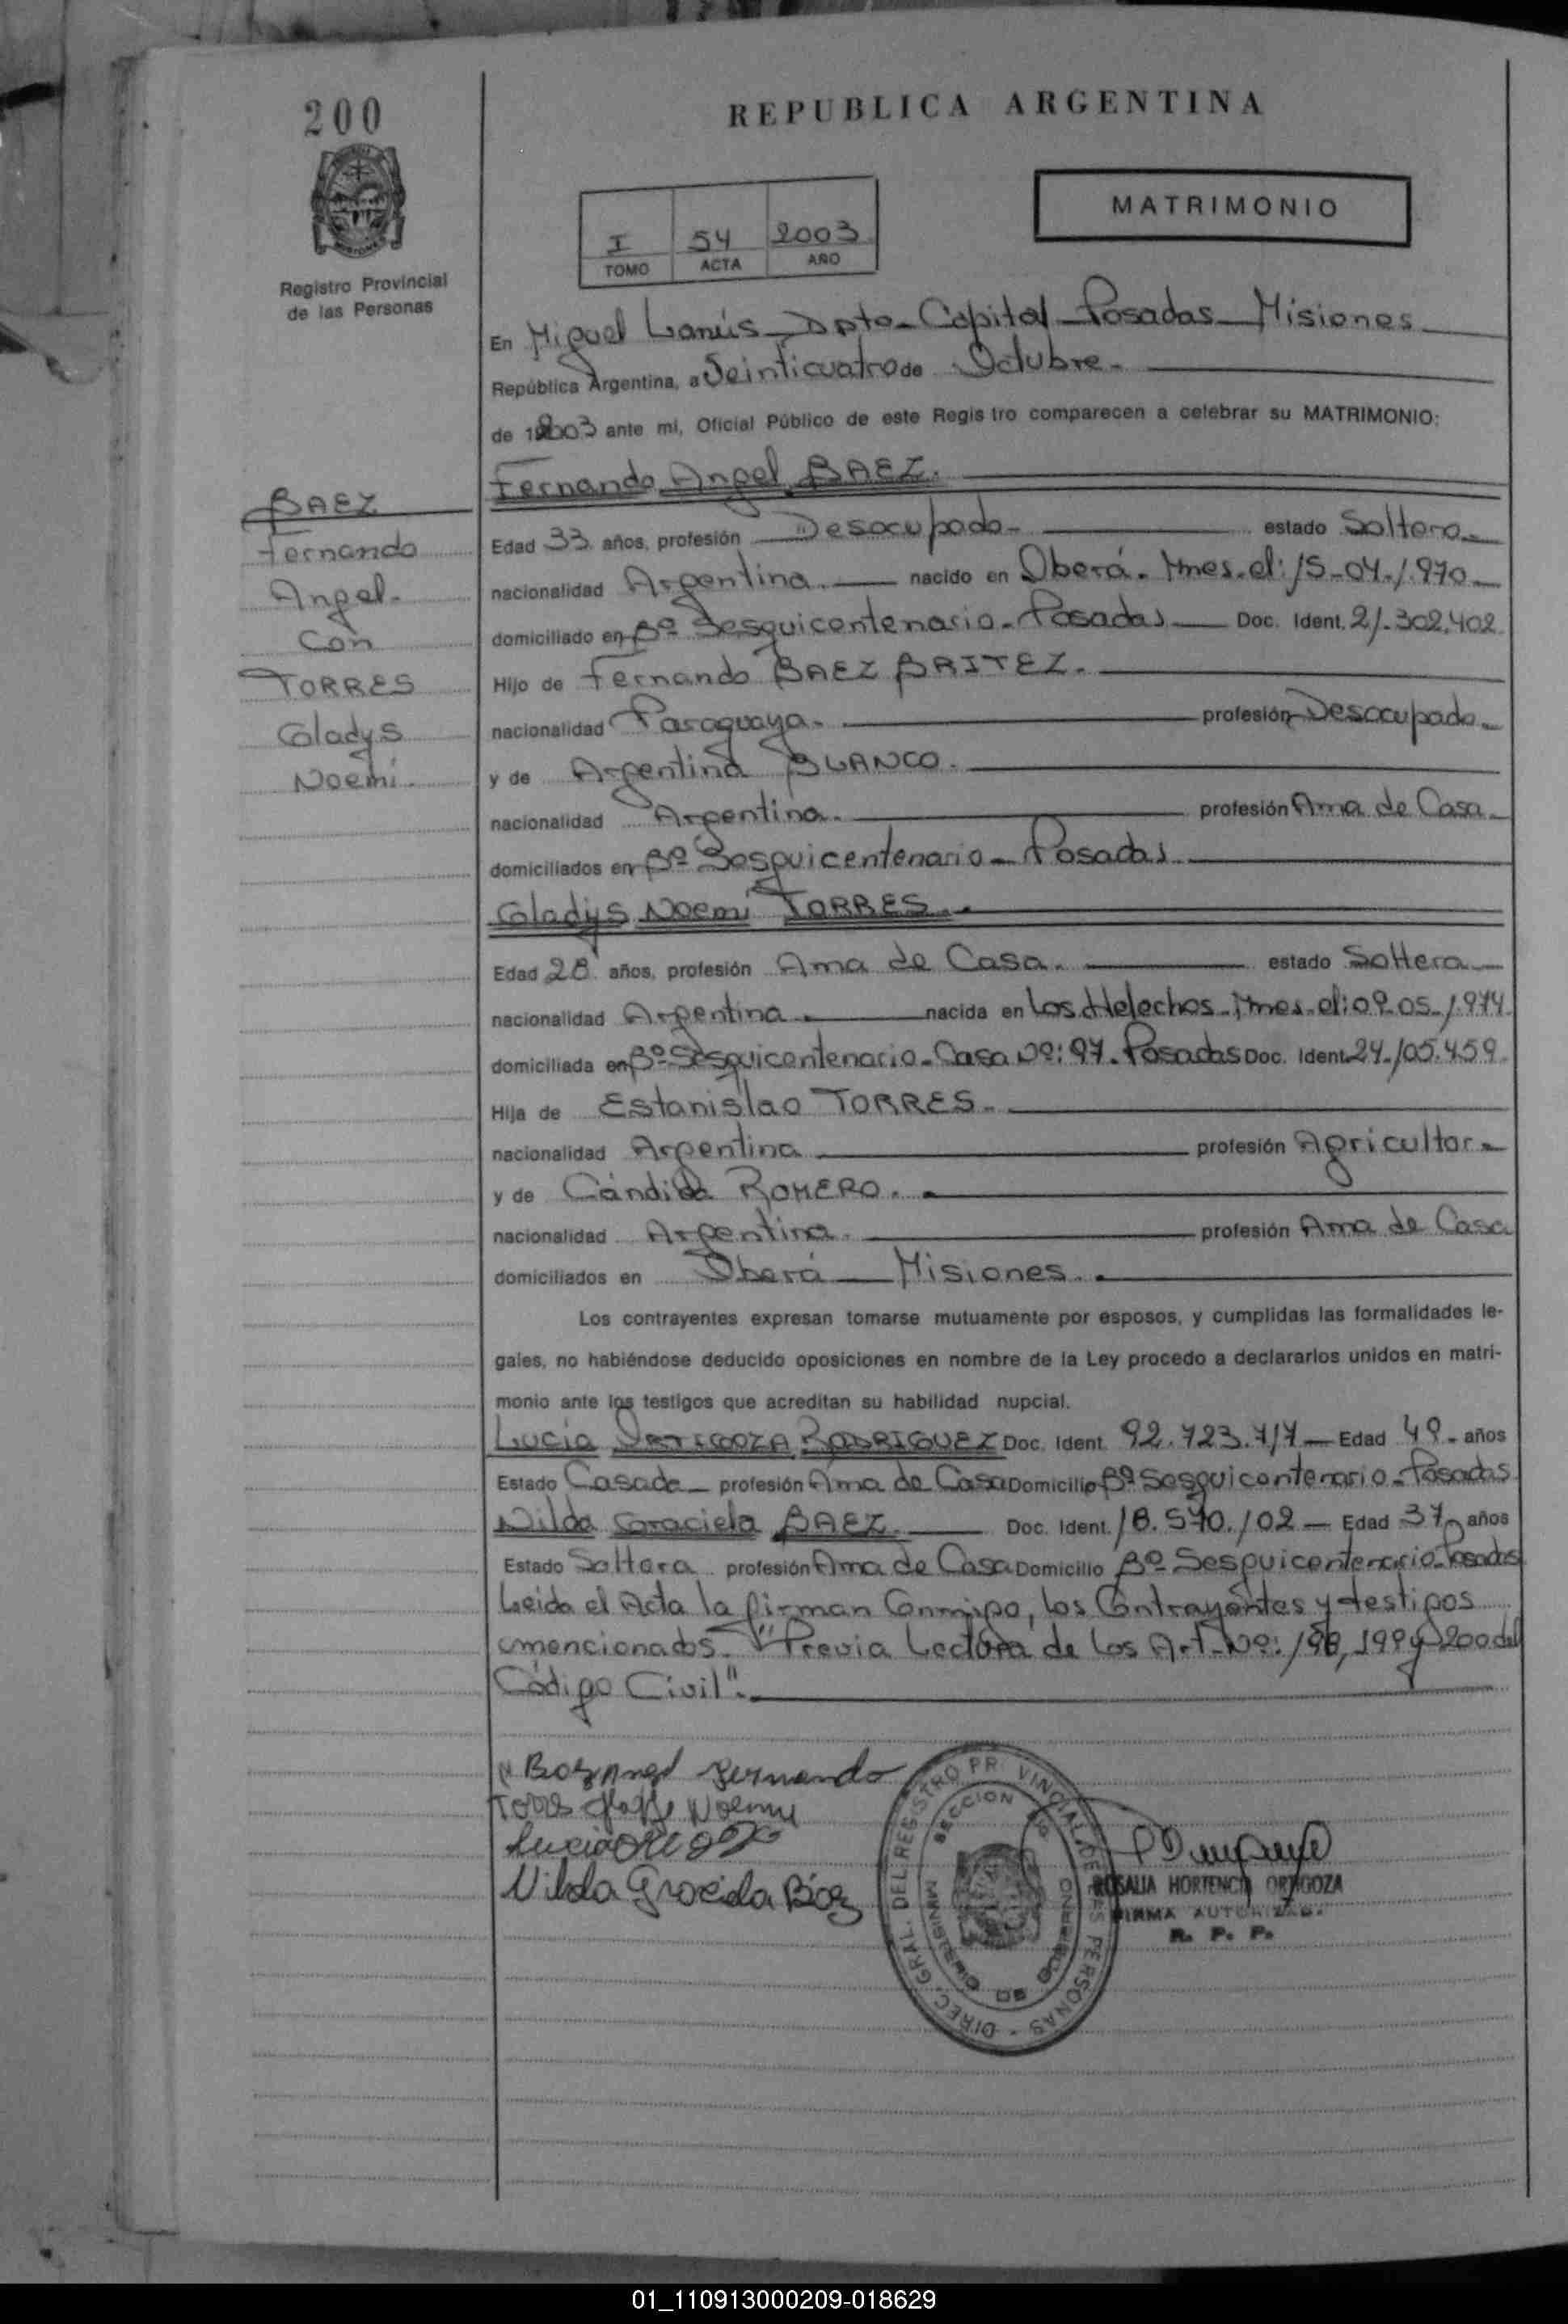 200
REPUBLICA ARGENTINA
MATRIMONIO
I 54 2003
TOMO ACTA AÑO
Registro Provincial
de las Personas
En Miguel Lanús - Dpto - Capital - Posadas - Misiones
República Argentina, a Veinticuatro de Octubre.
de 2003 ante mí, Oficial Público de este Registro comparecen a celebrar su MATRIMONIO:
Fernando Angel BAEZ.
BAEZ
Fernando
Angel.
Con
TORRES
Gladys
Noemí.
Edad 33 años, profesión Desocupado - estado Soltero -
nacionalidad Argentina. nacido en Oberá. Mnes. el: 15-04-1.970
domiciliado en Bº Sesquicentenario - Posadas Doc. Ident. 21.302.402
Hijo de Fernando BAEZ BRITEZ.
nacionalidad Paraguaya. profesión Desocupado.
y de Argentina BLANCO.
nacionalidad Argentina. profesión Ama de Casa.
domiciliados en Bº Sesquicentenario - Posadas
Gladys Noemí TORRES.
Edad 28 años, profesión Ama de Casa. estado Soltera
nacionalidad Argentina. nacida en Los Helechos - Mnes. el: 09-05-1.974
domiciliada en Bº Sesquicentenario - Casa Nº: 97 - Posadas Doc. Ident. 24.105.459
Hija de Estanislao TORRES.
nacionalidad Argentina profesión Agricultor.
y de Cándida ROMERO.
nacionalidad Argentina. profesión Ama de Casa
domiciliados en Oberá - Misiones.
Los contrayentes expresan tomarse mutuamente por esposos, y cumplidas las formalidades le-
gales, no habiéndose deducido oposiciones en nombre de la Ley procedo a declararlos unidos en matri-
monio ante los testigos que acreditan su habilidad nupcial.
Lucia ORTIGOZA RODRIGUEZ Doc. Ident. 92.723.717 - Edad 49 - años
Estado Casada - profesión Ama de Casa Domicilio Bº Sesquicentenario - Posadas
Nilda Graciela BAEZ. Doc. Ident. 18.570.102 - Edad 37 años
Estado Soltera profesión Ama de Casa Domicilio Bº Sesquicentenario - Posadas
Leida el Acta la firman Conmigo, los Contrayentes y testigos
mencionados. "Previa Lectura de los Art. Nº: 198, 199 y 200 del
Código Civil".
Baez Angel Fernando
Torres Gladys Noemi
Lucia Ortigoza
Nilda Graciela Báez
DIREC. GRAL. DEL REGISTRO PROVINCIAL DE LAS PERSONAS
SECCION
MINISTERIO DE GOBIERNO
ROSALIA HORTENCIA ORTIGOZA
FIRMA AUTORIZADA
R. P. P.
01_110913000209-018629